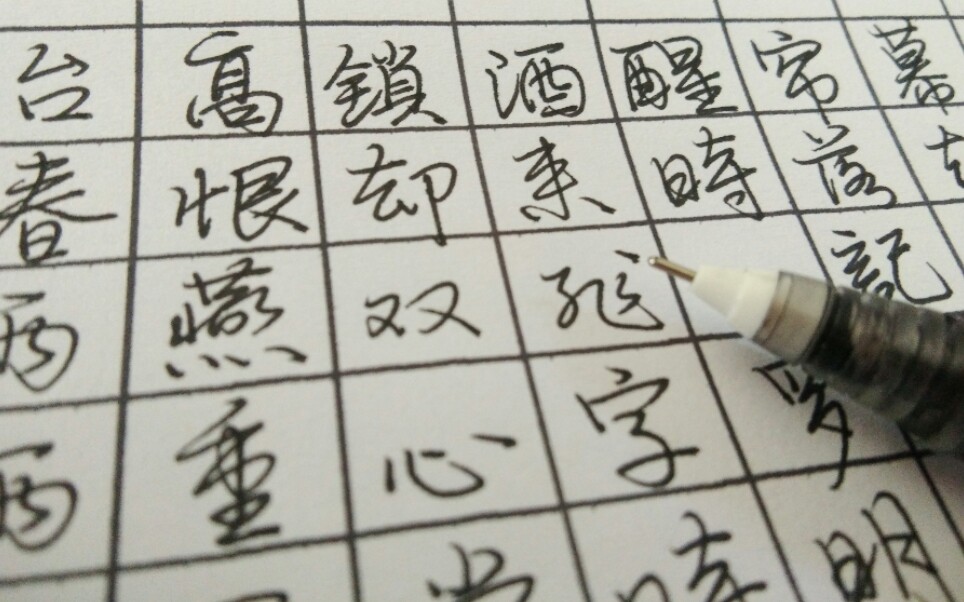 台高鎖酒醒帘幕
春恨却来時落
雨燕双飛記
两重心字
当時明